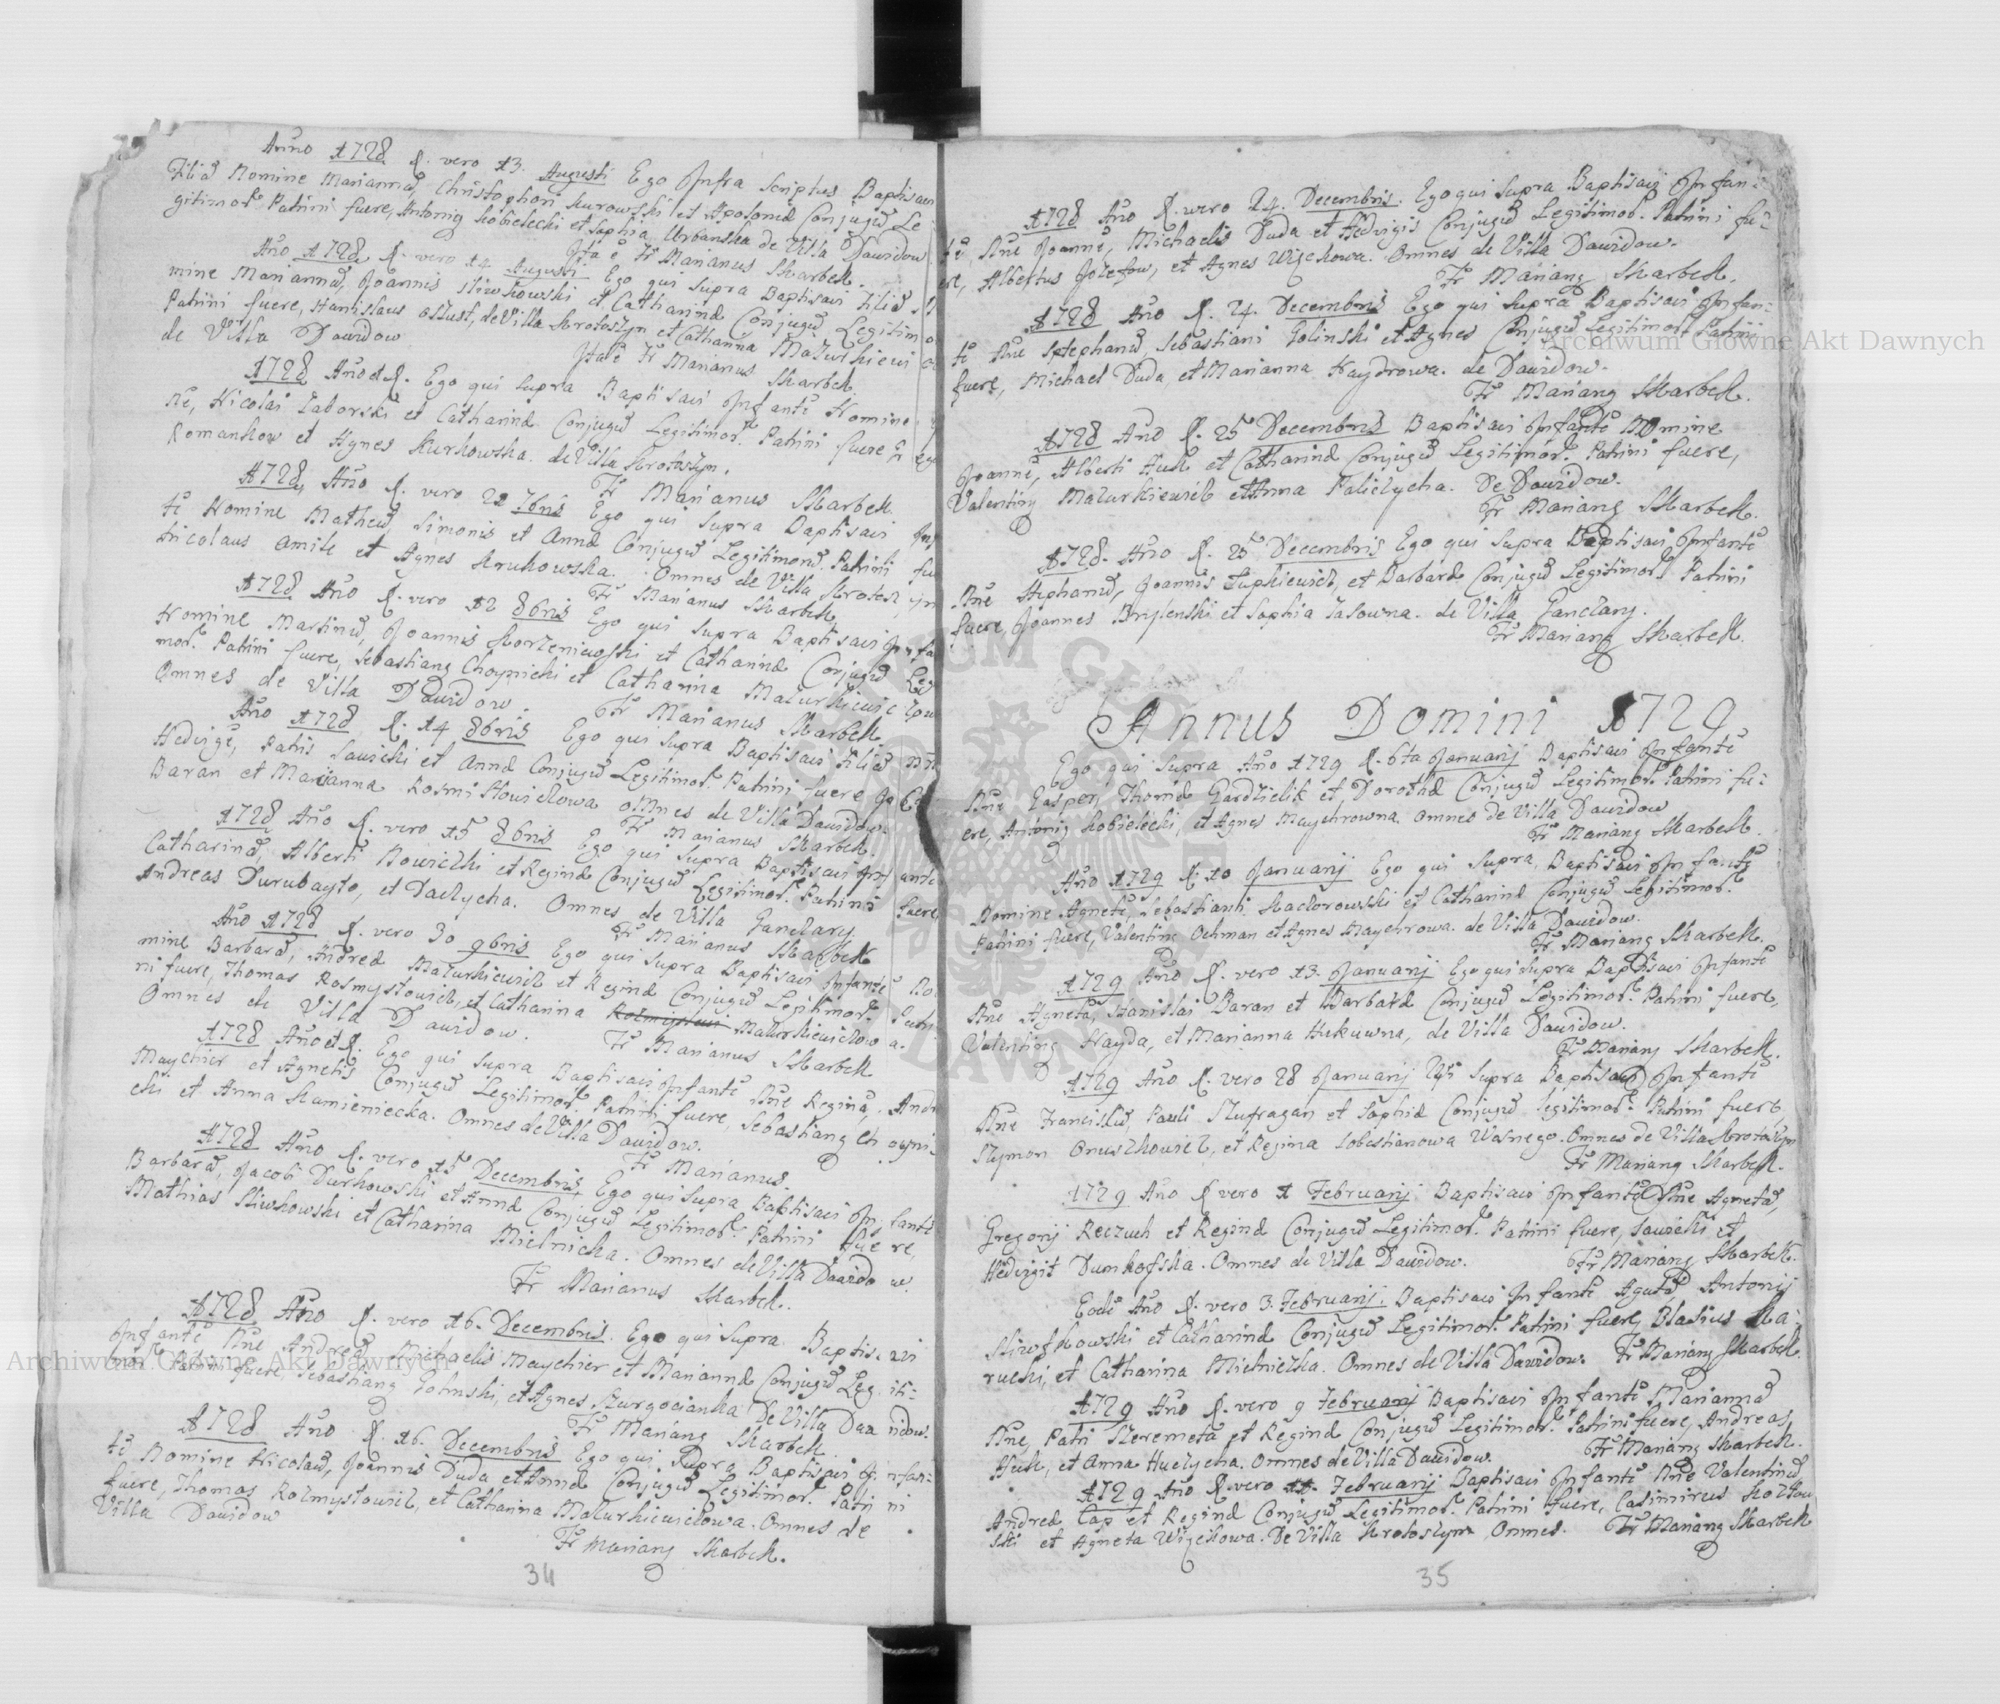 Anno 1728 R. vero 13. Augusti Ego Infra Scriptus Baptisavi
Filiã Nomine Mariannã, Christophori Kurowski et Apolonia Conjugũ Le-
gitimor. Patrini fuere, Antonig Kobielecki et Sophia Urbanska de Villa Dawidow
Ita ẽ Fr Marianus Skarbek.
Año 1728 R. vero 14 Augusti Ego qui supra Baptisavi Filiã
mine Mariannã, Joannis Sliwkowski et Catharinæ Conjugũ Legitim
Patrini fuere, Stanislaus Oslust, de Villa Krotoszyn et Catharina Mazurkiewi
de Villa Dawidow
Ita ẽ Fr Marianus Skarbek
1728 Año et R. Ego qui supra Baptisavi Infantẽ Nomine
nẽ, Nicolai Zaborski et Catharinæ Conjugũ Legitimor. Patrini fuere
Romankow et Agnes Kurkowska. de Villa Krotoszyn.
Fr Marianus Skarbek
1728 Año R. vero 22 7bris Ego qui supra Baptisavi Inf
tẽ Nomine Matheũ Simonis et Annæ Conjugũ Legitimorũ. Patrini fu
Nicolaus Amilk et Agnes Krukowska. Omnes de Villa Krotoszyn
Fr Marianus Skarbek
1728 Año R. vero 12 8bris Ego qui supra Baptisavi Infa
Nomine Martinũ, Joannis Korzeniewski et Catharinæ Conjugũ Leg
mor. Patrini fuere, Sebastiang Choynicki et Catharina Mazurkiewiczowa
Omnes de Villa Dawidow.
Fr Marianus Skarbek
Año 1728 R. 14 8bris Ego qui supra Baptisavi Filiã Nñe
Hedvigẽ, Patris Sawicki et Annæ Conjugũ Legitimor. Patrini fuere
Baran et Marianna Rosmislowiczowa omnes de Villa Dawidow.
Fr Marianus Skarbek.
1728 Año R. vero 15 8bris Ego qui supra Baptisavi Infantẽ
Catharinã, Alberti Bowiczki et Reginæ Conjugũ Legitimor. Patrini fuere
Andreas Durubayło, et Daczycha. Omnes de Villa Ganczary
Fr Marianus Skarbek
Año 1728 R. vero 30 9bris Ego qui supra Baptisavi Infantẽ No
mine Barbarã, Andreæ Mazurkiewicz et Reginæ Conjugũ Legitimor. Patri
ni fuere, Thomas Rosmyslowicz, et Catharina Mazurkiewiczowa.
Omnes de Villa Dawidow.
Fr Marianus Skarbek
1728 Año et R. Ego qui supra Baptisavi Infantẽ Nñe Reginã, Andr
Maycher et Agnetis Conjugũ Legitimor. Patrini fuere, Sebastiang Choyni-
cki et Anna Kamieniecka. Omnes de Villa Dawidow.
Fr Marianus.
1728 Año R. vero 15 Decembris Ego qui supra Baptisavi Infantẽ
Barbarã, Jacobi Durkowski et Annæ Conjugũ Legitimor. Patrini fuere,
Mathias Sliwkowski et Catharina Mielnicka. Omnes de Villa Dawidow.
Fr Marianus Skarbek.
1728 Año R. vero 16. Decembris. Ego qui supra Baptisavi
Infantẽ Nñe Andreã, Michaelis Maycher et Mariannæ Conjugũ Legiti-
mor. Patrini fuere, Sebastiang Golinski, et Agnes Kurgocianka De Villa Dawidow.
Fr Mariang Skarbek
1728 Año R. 16. Decembris Ego qui supra Baptisavi Infan-
tẽ Nomine Nicolaũ, Joannis Duda et Annæ Conjugũ Legitimor. Patrini
fuere, Thomas Rozmyslowicz, et Catharina Mazurkiewiczowa. Omnes de
Villa Dawidow
Fr Mariang Skarbek.
34
1728 Año R. vero 24. Decembris. Ego qui supra Baptisavi Infan-
tẽ, Nñe Joannẽ, Michaelis Duda et Hedvigis Conjugũ Legitimor. Patrini fu-
ere, Albertus Jozefow, et Agnes Wiyckowa. Omnes de Villa Dawidow.
Fr Mariang Skarbek.
1728 Año R. 24. Decembris Ego qui supra Baptisavi Infan-
tẽ Nñe Stephanũ, Sebastiani Golinski et Agnes Conjugũ Legitimor. Patrini
fuere, Michael Duda, et Marianna Kaydrowa. de Dawidow.
Fr Mariang Skarbek.
1728 Año R. 25 Decembris Baptisavi Infantẽ Nomine
Joannẽ, Alberti Huk et Catharinæ Conjugũ Legitimor. Patrini fuere,
Valenting Mazurkiewicz et Anna Paliczycha. De Dawidow.
Fr Mariang Skarbek.
1728. Año R. 25 Decembris Ego qui supra Baptisavi Infantẽ
Nñe Stephanũ, Joannis Zupkiewicz, et Barbaræ Conjugũ Legitimor. Patrini
fuere, Joannes Brylenski et Sophia Jasowna. de Villa Ganczary.
Fr Mariang Skarbek.
Annus Domini 1729
Ego qui supra Año 1729 R. 6ta Januarij Baptisavi Infantẽ
Nñe Gasper, Thomæ Gardzielik et Dorothæ Conjugũ Legitimor. Patrini fu-
ere, Antonig Kobielecki, et Agnes Maychrowna Omnes de Villa Dawidow
Fr Mariang Skarbek.
Año 1729 R. 10 Januarij Ego qui supra Baptisavi Infantẽ
Nomine Agnetẽ, Sebastiani Kaczorowski et Catharinæ Conjugũ Legitimor.
Patrini fuere, Valenting Ochman et Agnes Maychrowa. de Villa Dawidow.
Fr Mariang Skarbek.
1729 Año R. vero 13. Januarij Ego qui supra Baptisavi Infantẽ
Nñe Agnetã, Stanislai Baran et Barbaræ Conjugũ Legitimor. Patrini fuere,
Valenting Hayda, et Marianna Hukuwna, de Villa Dawidow.
Fr Mariang Skarbek.
1729 Año R. vero 28 Januarij Qui supra Baptisavi Infantẽ
Nñe Franciskũ, Pauli Szufragan et Sophiæ Conjugũ Legitimor. Patrini fuere
Szymon Onuszkowicz, et Regina Sobestianowa Wasnego. Omnes de Villa Krotoszyn
Fr Mariang Skarbek.
1729 Año R vero 1 Februarij Baptisavi Infantẽ Nñe Agnetã,
Gregorij Reczuch et Reginæ Conjugũ Legitimor. Patrini fuere, Sawicki et
Hedvigis Dumkofska. Omnes de Villa Dawidow. Fr Mariang Skarbek.
Eodẽ Año R. vero 3. Februarij. Baptisavi Infantẽ Agatã Antonij
Sliwskowski et Catharinæ Conjugũ Legitimor. Patrini fuere, Blasius Ka-
rucki, et Catharina Mielniczka. Omnes de Villa Dawidow. Fr Mariang Skarbek.
1729 Año R. vero 9 Februarij Baptisavi Infantẽ Mariannã
Nñe, Patri Szeremeta et Reginæ Conjugũ Legitimor. Patrini fuere, Andreas
Huk, et Anna Huczycha. Omnes de Villa Dawidow. Fr Mariang Skarbek.
1729 Año R. vero 11. Februarij Baptisavi Infantẽ Nñe Valentinũ,
Andreæ Cap et Reginæ Conjugũ Legitimor. Patrini fuere, Casimirus Kozlow
ski et Agneta Wiyckowa. De Villa Krotoszyn Omnes. Fr Mariang Skarbek
35
Archiwum Główne Akt Dawnych
Archiwum Główne Akt Dawnych